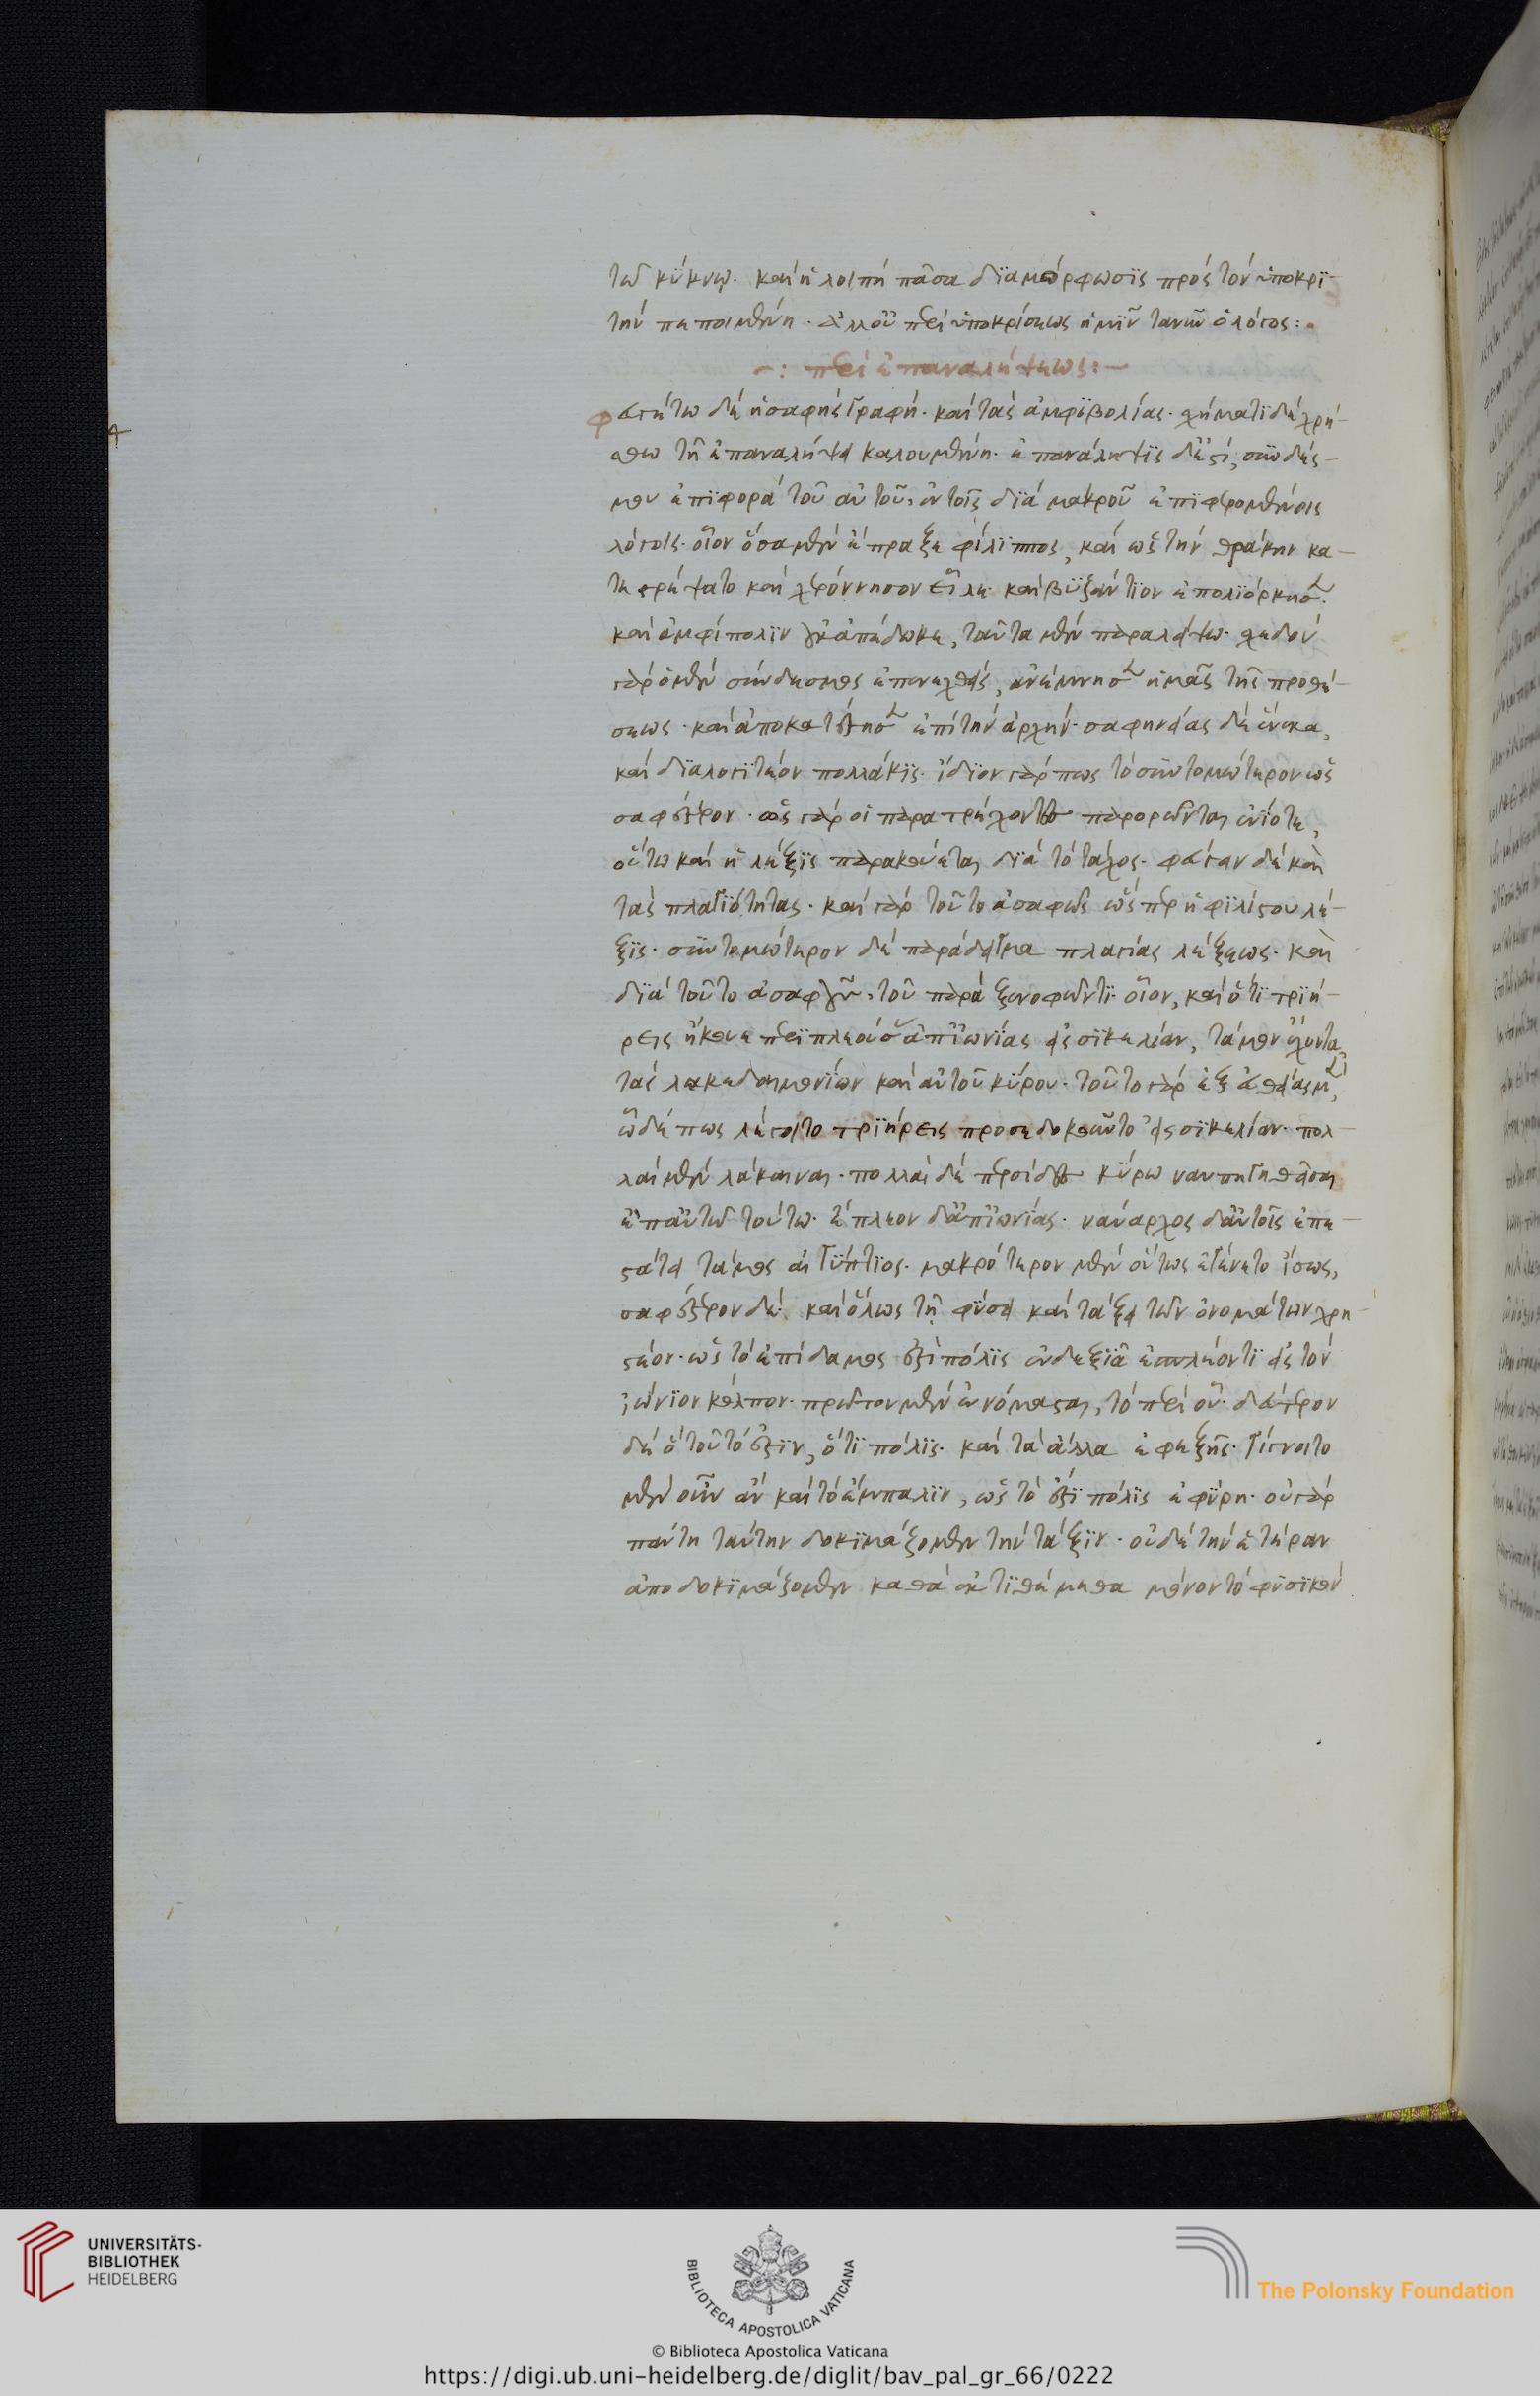 τῷ κύκνῳ. καὶ ἡ λοιπὴ πᾶσα διαμόρφωσις πρὸς τὸν ὑποκρι-
τὴν πεποιημένη. ἀλλ' οὐ περὶ ὑποκρίσεως ἡμῖν τανῦν ὁ λόγος:
-: περὶ ἐπαναλήψεως:-
φευγέτω δὲ ἡ σαφὴς γραφὴ. καὶ τὰς ἀμφιβολίας. σχήματι δὲ χρή-
σθω τῇ ἐπαναλήψει καλουμένη. ἐπανάληψις δ' ἐστὶ, συνδές-
μου ἐπιφορὰ τοῦ αὐτοῦ, ἐν τοῖς διὰ μακροῦ ἐπιφερομένοις
λόγοις. οἷον ὅσα μὲν ἔπραξε φίλιππος, καὶ ὡς τὴν θράκην κα-
τεστρέψατο καὶ χερόννησον εἷλε. καὶ βυζάντιον ἐπολιόρκησε.
καὶ ἀμφίπολιν οὐκ ἀπέδωκε, ταῦτα μὲν παραλείψω. σχεδὸν
γὰρ ὁ μὲν σύνδεσμος ἐπενεχθεὶς, ἀνέμνησεν ἡμᾶς τῆς προθέ-
σεως. καὶ ἀποκατέστησεν ἐπὶ τὴν ἀρχήν. σαφηνείας δὲ ἕνεκα,
καὶ διαλογιτέον πολλάκις. ἴδιον γάρ πως τὸ συντομώτερον ὡς
σαφέστερον. ὡς γὰρ οἱ παρατρέχοντες παρορῶνται ἐνίοτε,
οὕτω καὶ ἡ λέξις παρακούεται διὰ τὸ τάχος. φεύγειν δὲ καὶ
τὰς πλαγιότητας. καὶ γὰρ τοῦτο ἀσαφῶς ὥσπερ ἡ φιλίστου λέ-
ξις. συντομώτερον δὲ παράδειγμα πλαγίας λέξεως. καὶ
διὰ τοῦτο ἀσαφοῦς, τοῦ παρὰ ξενοφῶντι. οἷον, καὶ ὅτι τριή-
ρεις ἤκουε περιπλεούσας ἀπ' ἰωνίας εἰς σικελίαν, τάμον ἔχοντα
τὰς λακεδαιμονίων καὶ αὐτοῦ κύρου. τοῦτο γὰρ ἐξ εὐθείας μὲν,
ὧδέ πως λέγοιτο τριήρεις προσεδοκοῦντο εἰς σικελίαν. πολ-
λαὶ μὲν λάκαιναι. πολλαὶ δὲ περσίδες κύρω ναυπηγηθεῖσαι
ἐπ' αὐτῷ τούτω. ἔπλεον δ' ἀπ' ἰωνίας. ναύαρχος δ' αὐτοῖς ἐπε-
στάτει τάμος αἰγύπτιος. μακρότερον μὲν οὕτως ἐγένετο ἴσως,
σαφέστερον δέ. καὶ ὅλως τῇ φύσει καὶ τάξει τῶν ὀνομάτων χρη-
στέον. ὡς τὸ ἐπίδαμος ἐστὶ πόλις ἐν δεξιᾷ ἐσπλέοντι εἰς τὸν
ἰώνιον κόλπον. πρῶτον μὲν ὠνόμασται, τὸ περὶ οὗ. δεύτερον
δὲ ὃ τοῦτό ἐστιν, ὅτι πόλις. καὶ τὰ ἄλλα ἐφεξῆς. γίγνοιτο
μὲν οὖν ἂν καὶ τὸ ἔμπαλιν, ὡς τὸ ἔστι πόλις ἐφύρη. οὐ γὰρ
πάντη ταύτην δοκιμάζομεν τὴν τάξιν. οὐδὲ τὴν ἑτέραν
ἀποδοκιμάζομεν καθὰ ἐκτιθέμεθα μόνον τὸ φυσικὸν
UNIVERSITÄTS-
BIBLIOTHEK
HEIDELBERG
BIBLIOTECA APOSTOLICA VATICANA
The Polonsky Foundation
© Biblioteca Apostolica Vaticana
https://digi.ub.uni-heidelberg.de/diglit/bav_pal_gr_66/0222